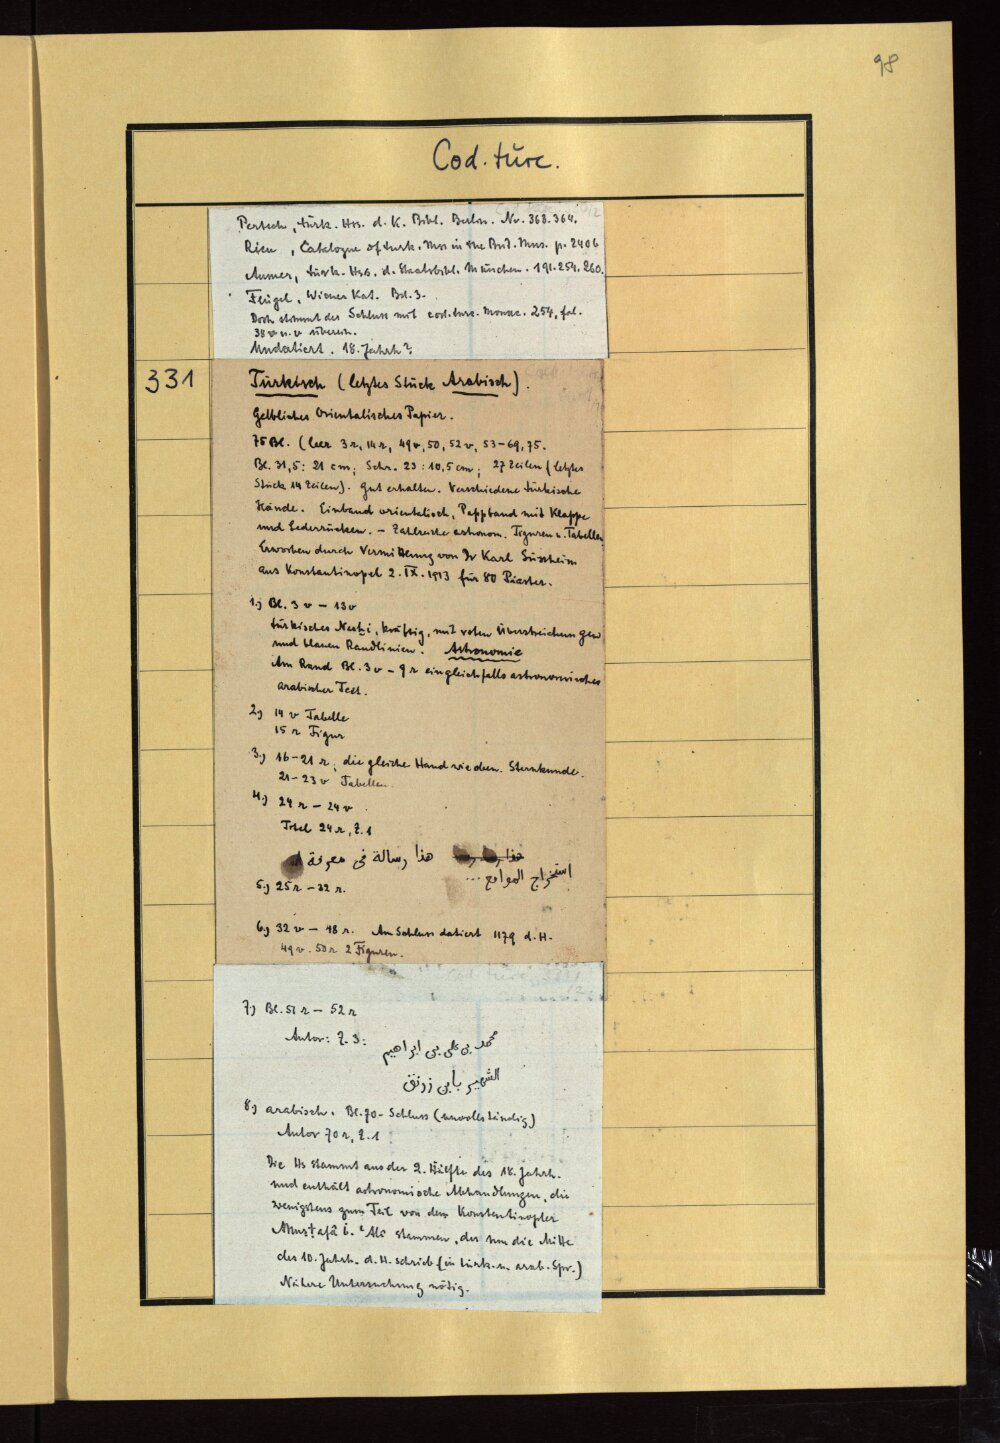 98
Cod. turc.
Pertsch, türk. Hss. d. K. Bibl. Berlin. Nr. 363.364.
Rieu, Catalogue of turk. Mss in the Brit. Mus. p. 240b
Aumer, türk. Hss. d. Staatsbibl. München. 191.254.260.
Flügel, Wiener Kat. Bd. 3.
Doch stimmt der Schluss mit cod. turc. monac. 254, fol.
38 v u. v überein.
Undatiert. 18. Jahrh?
331
Türkisch (letztes Stück Arabisch).
Gelbliches Orientalisches Papier.
75 Bl. (leer 3r, 14r, 49v, 50, 52v, 53-69, 75.
Bl. 31,5 : 21 cm; Schr. 23 : 10,5 cm; 27 Zeilen (letztes
Stück 19 Zeilen). Gut erhalten. Verschiedene türkische
Hände. Einband orientalisch, Pappband mit Klappe
und Lederrücken. - Zahlreiche astronom. Figuren u. Tabellen
Erworben durch Vermittlung von Dr Karl Süssheim
aus Konstantinopel 2. IX. 1913 für 80 Piaster.
1.) Bl. 3v - 13v
türkisches Neskhi, kräftig, mit roten Überstreichungen
und blauen Randlinien. Astronomie
Am Rand Bl. 3v - 9r ein gleichfalls astronomischer
arabischer Text.
2.) 14 v Tabelle
15 r Figur
3.) 16-21 r; die gleiche Hand wie oben. Sternkunde.
21-23 v Tabellen.
4.) 24 r - 24 v.
Titel 24 r, Z. 1
هذا رسالة فى معرفة
استخراج المواقع ...
5.) 25 r - 32 r.
6.) 32 v - 48 r. Am Schluss datiert 1179 d. H.
49 v. 50 r 2 Figuren.
7.) Bl. 51 r - 52 r
Autor: Z. 3:
محمد بن على بن ابراهيم
الشهير بأبن زرنق
8.) arabisch. Bl. 70 - Schluss (unvollständig)
Autor 70 r, Z. 1
Die Hs stammt aus der 2. Hälfte des 18. Jahrh.
und enthält astronomische Abhandlungen, die
wenigstens zum Teil von dem Konstantinopler
Muṣṭafâ b. ʿAlî stammen, der um die Mitte
des 10. Jahrh. d. H. schrieb (in türk. u. arab. Spr.)
Nähere Untersuchung nötig.